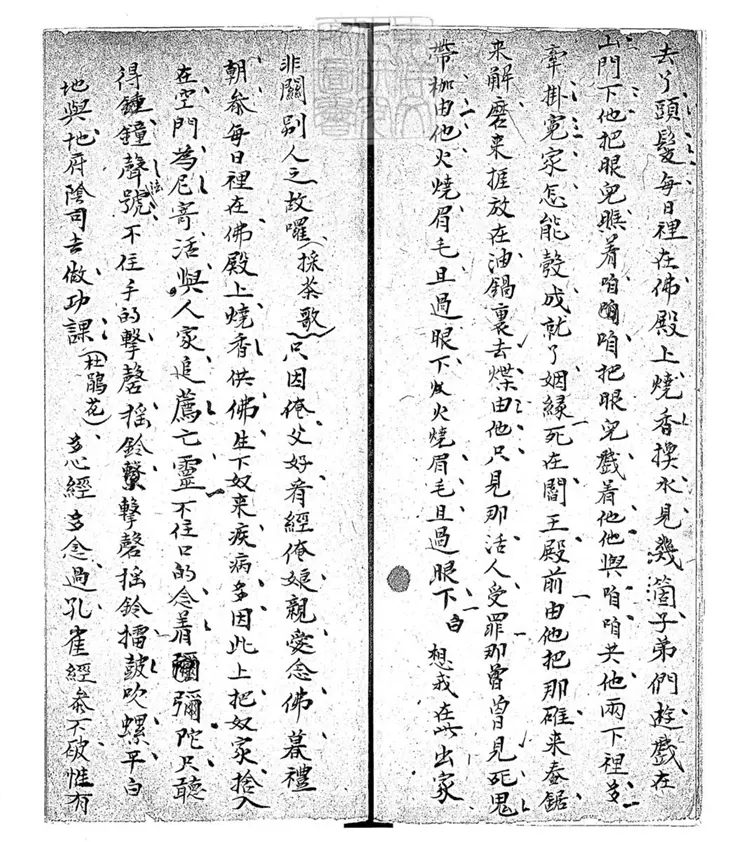 去了頭髮每日裡在佛殿上燒香換水見幾箇子弟們遊戲在
山門下他把眼兒瞧着咱咱把眼兒戲着他他與咱咱共他兩下裡多
牽掛寃家怎能彀成就了姻緣死在閻王殿前由他把那碓来舂鋸
来解磨来挨放在油鍋裏去煠由他只見那活人受罪那曾見死鬼
帶枷由他火燒眉毛且過眼下火燒眉毛且過眼下白 想我在此出家
非關別人之故囉(採茶歌)只因俺父好看經俺娘親愛念佛暮禮
朝參每日裡在佛殿上燒香供佛生下奴来疾病多因此上把奴家捨入
在空門為尼寄活與人家追薦亡靈不住口的念着彌陀只聽
得鐘聲法號不住手的擊磬搖鈴擊磬搖鈴擂鼓吹螺平白
地與地府陰司去做功課(杜鵑花)多心經多念過孔雀經參不破惟有